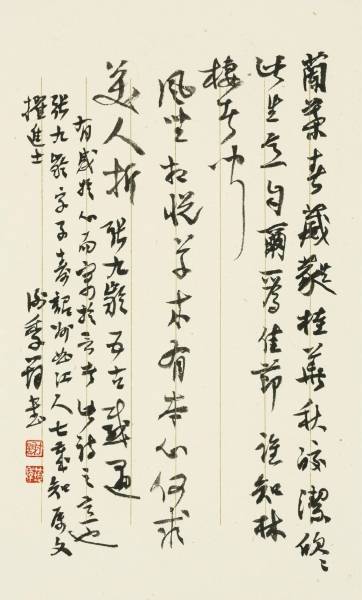 蘭葉春葳蕤桂華秋皎潔欣〻
此生意自爾爲佳節誰知林
棲者聞
風坐相悅草木有本心何求
美人折 張九齡五古感遇
有感於心而寓於言者此詩之意也
張九齡字子壽韶州曲江人七歲知屬文
擢進士
季書